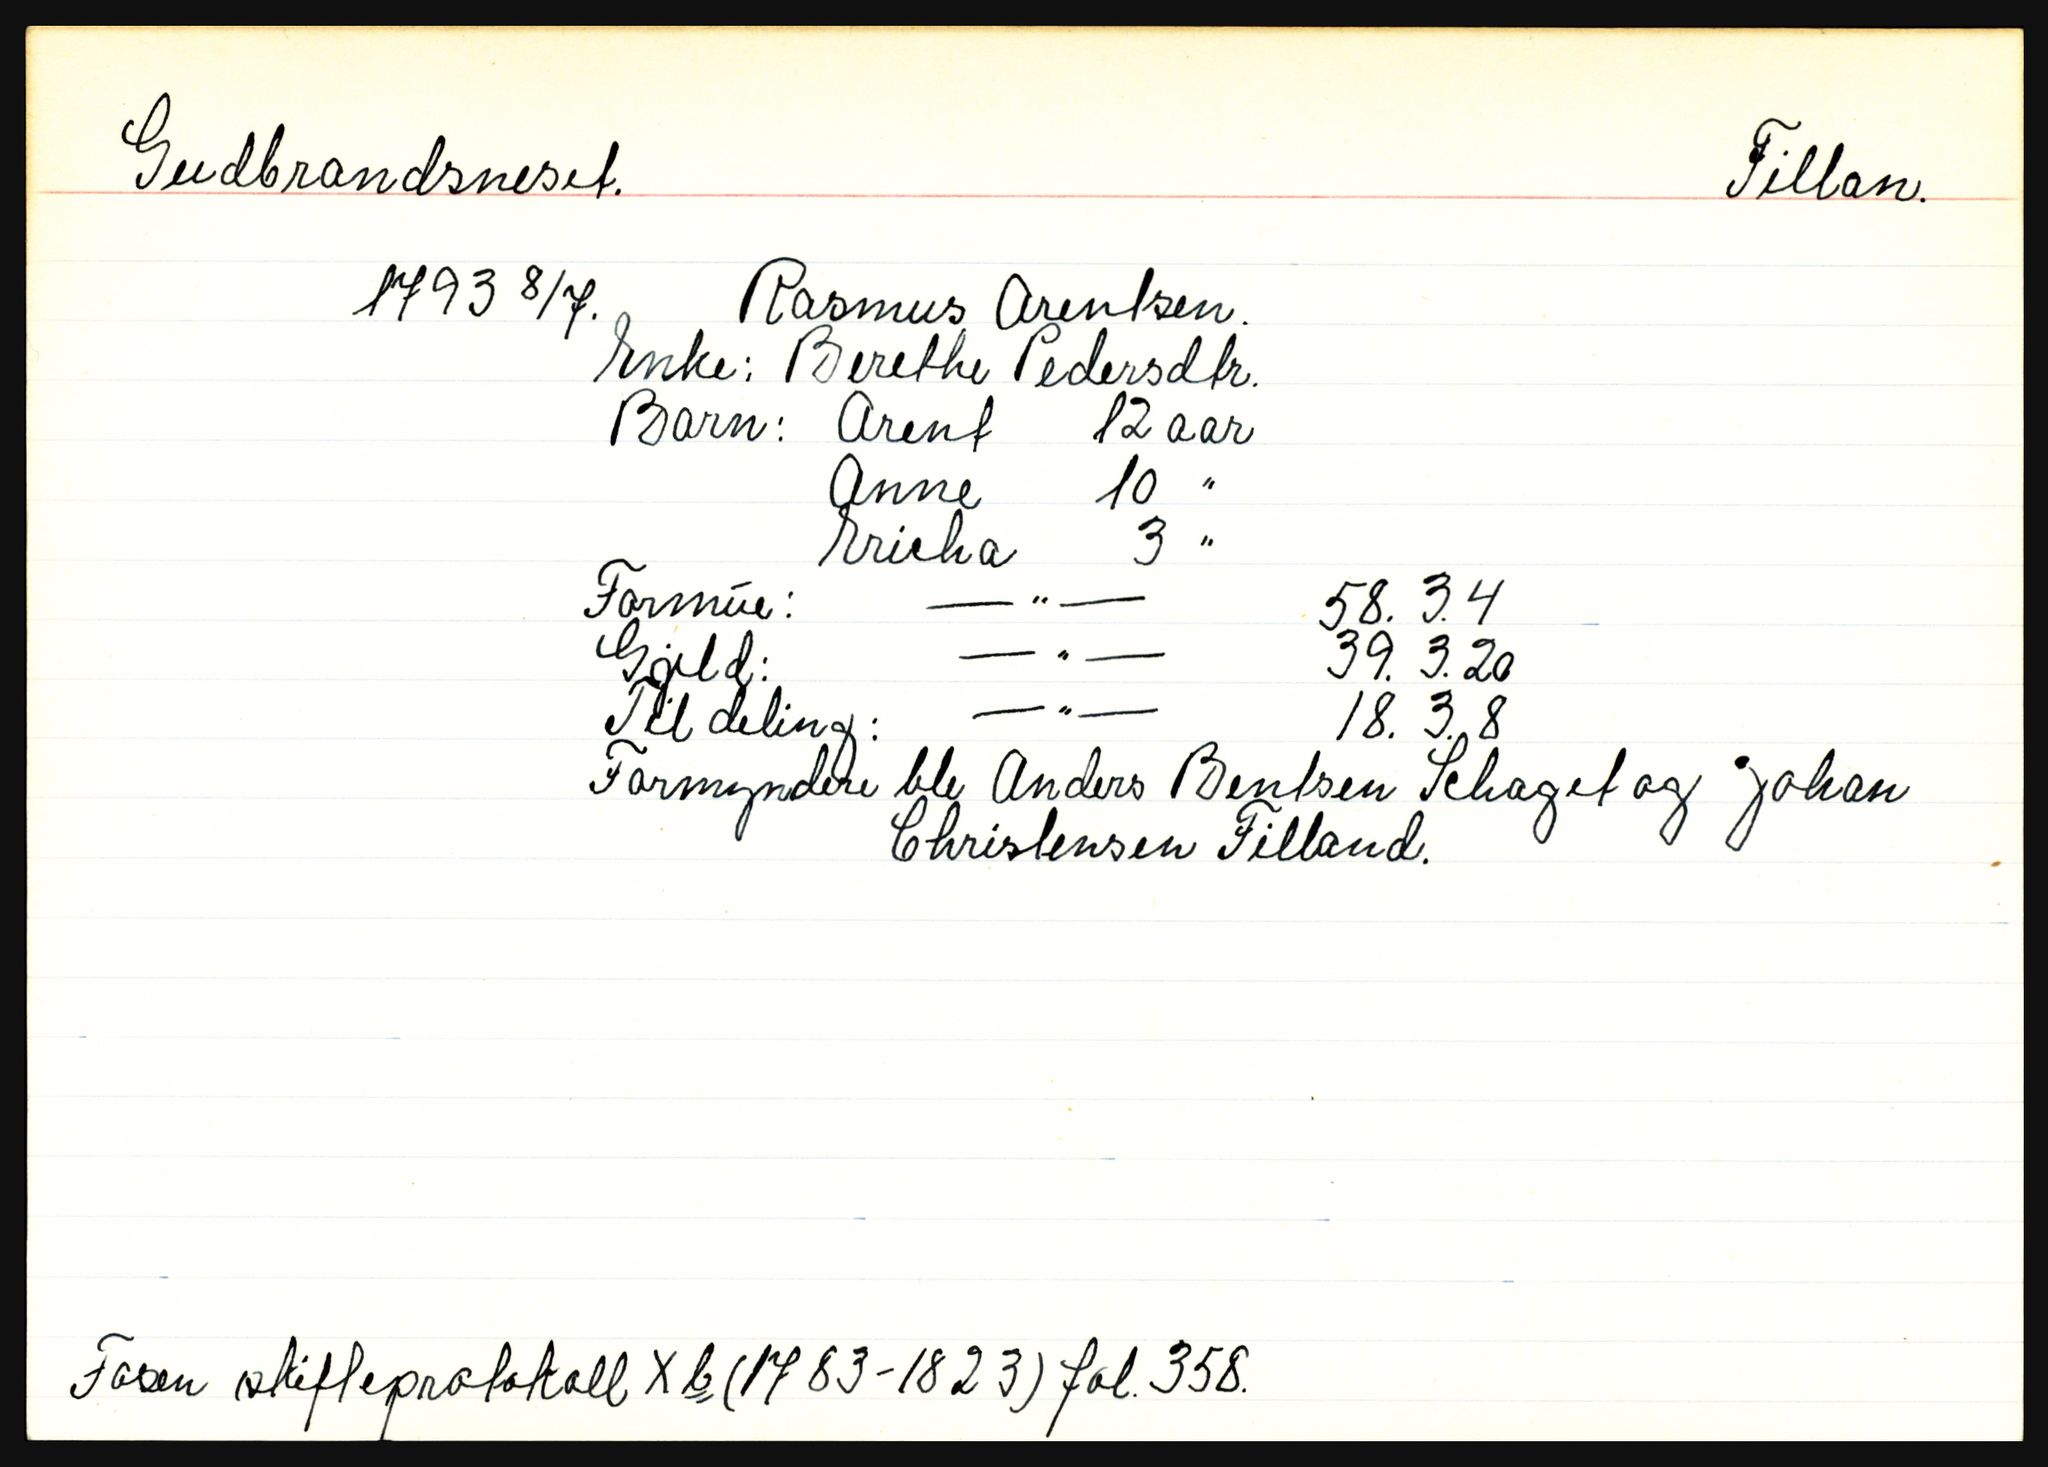 Gudbrandsneset. Fillan.
1793 8/7. Rasmus Arentsen.
Enke: Berethe Pedersdtr.
Barn: Arent 12 aar
Anne 10 "
Ericha 3 "
Formūe: — " — 58. 3. 4
Gjeld: — " — 39. 3. 20
Til deling: — " — 18. 3. 8
Formyndere ble Anders Bentsen Schaget og Johan
Christensen Filland.
Fosen skifteprotokoll X b (1783-1823) fol. 358.